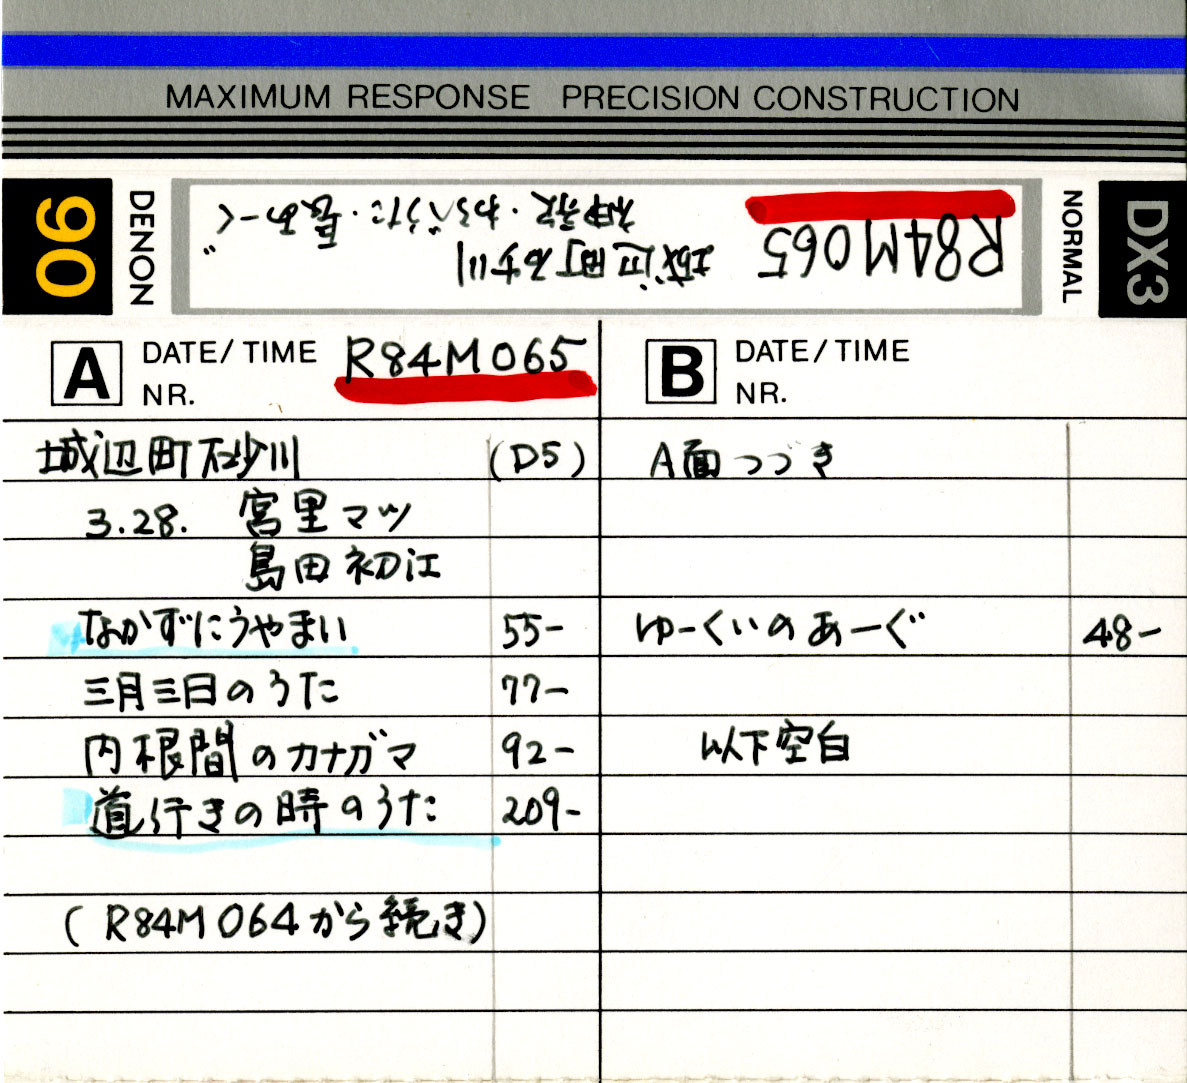 MAXIMUM RESPONSE PRECISION CONSTRUCTION
90
DENON
R84M065
城辺町砂川
神歌・わらべうた・長あーぐ
NORMAL
DX3
A DATE/TIME R84M065
NR.
城辺町砂川 (D5)
3.28. 宮里マツ
島田初江
なかずにうやまい 55-
三月三日のうた 77-
内根間のカナガマ 92-
道行きの時のうた 209-
(R84M064から続き)
B DATE/TIME
NR.
A面つづき
ゆーくいのあーぐ 48-
以下空白